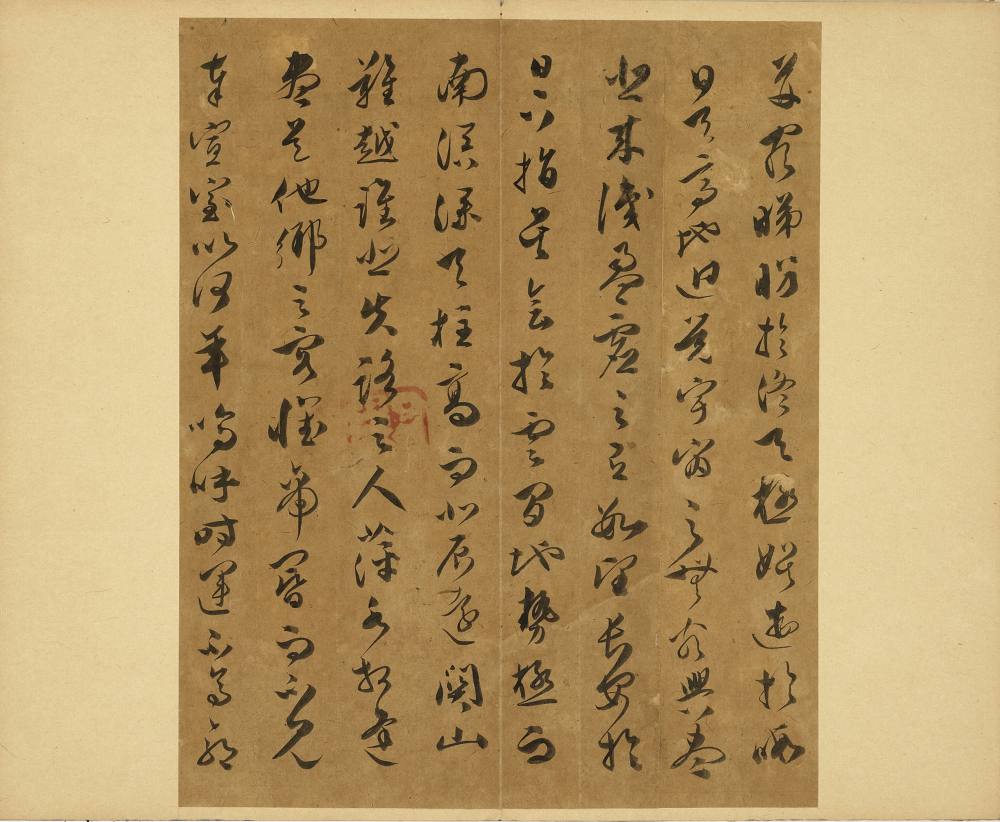 并窮睇眄於天極娛遊於暇
日天高地迥覺宇宙之無窮興盡
悲來識盈虛之有數望長安於
日下指吳會於雲間地勢極而
南溟深天柱高而北辰遠關山
難越誰悲失路之人萍水相逢
盡是他鄉之客懷帝閽而不見
奉宣室以何年嗚呼時運不齊命